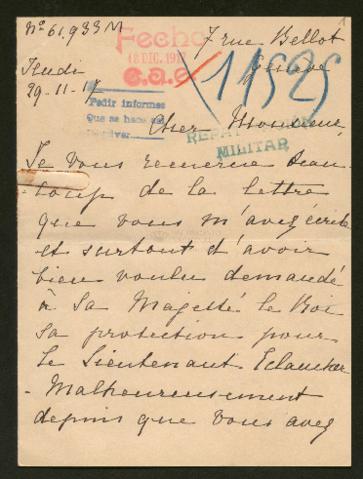 Nº 61,933 M
1
Fecha
18 DIC. 1917
c.a.c.
7 rue Bellot
Genève
Jeudi
29-11-17
11525
Pedir informes
Que se hace así
Devolver
Cher Monsieur,
MILITAR
Je vous remercie beau
coup de la lettre
que vous m'avez écrite
et surtout d'avoir
bien voulu demandé
à Sa Magesté le Roi
Sa protection pour
le Lieutenant
- Malheureusement
depuis que vous avez